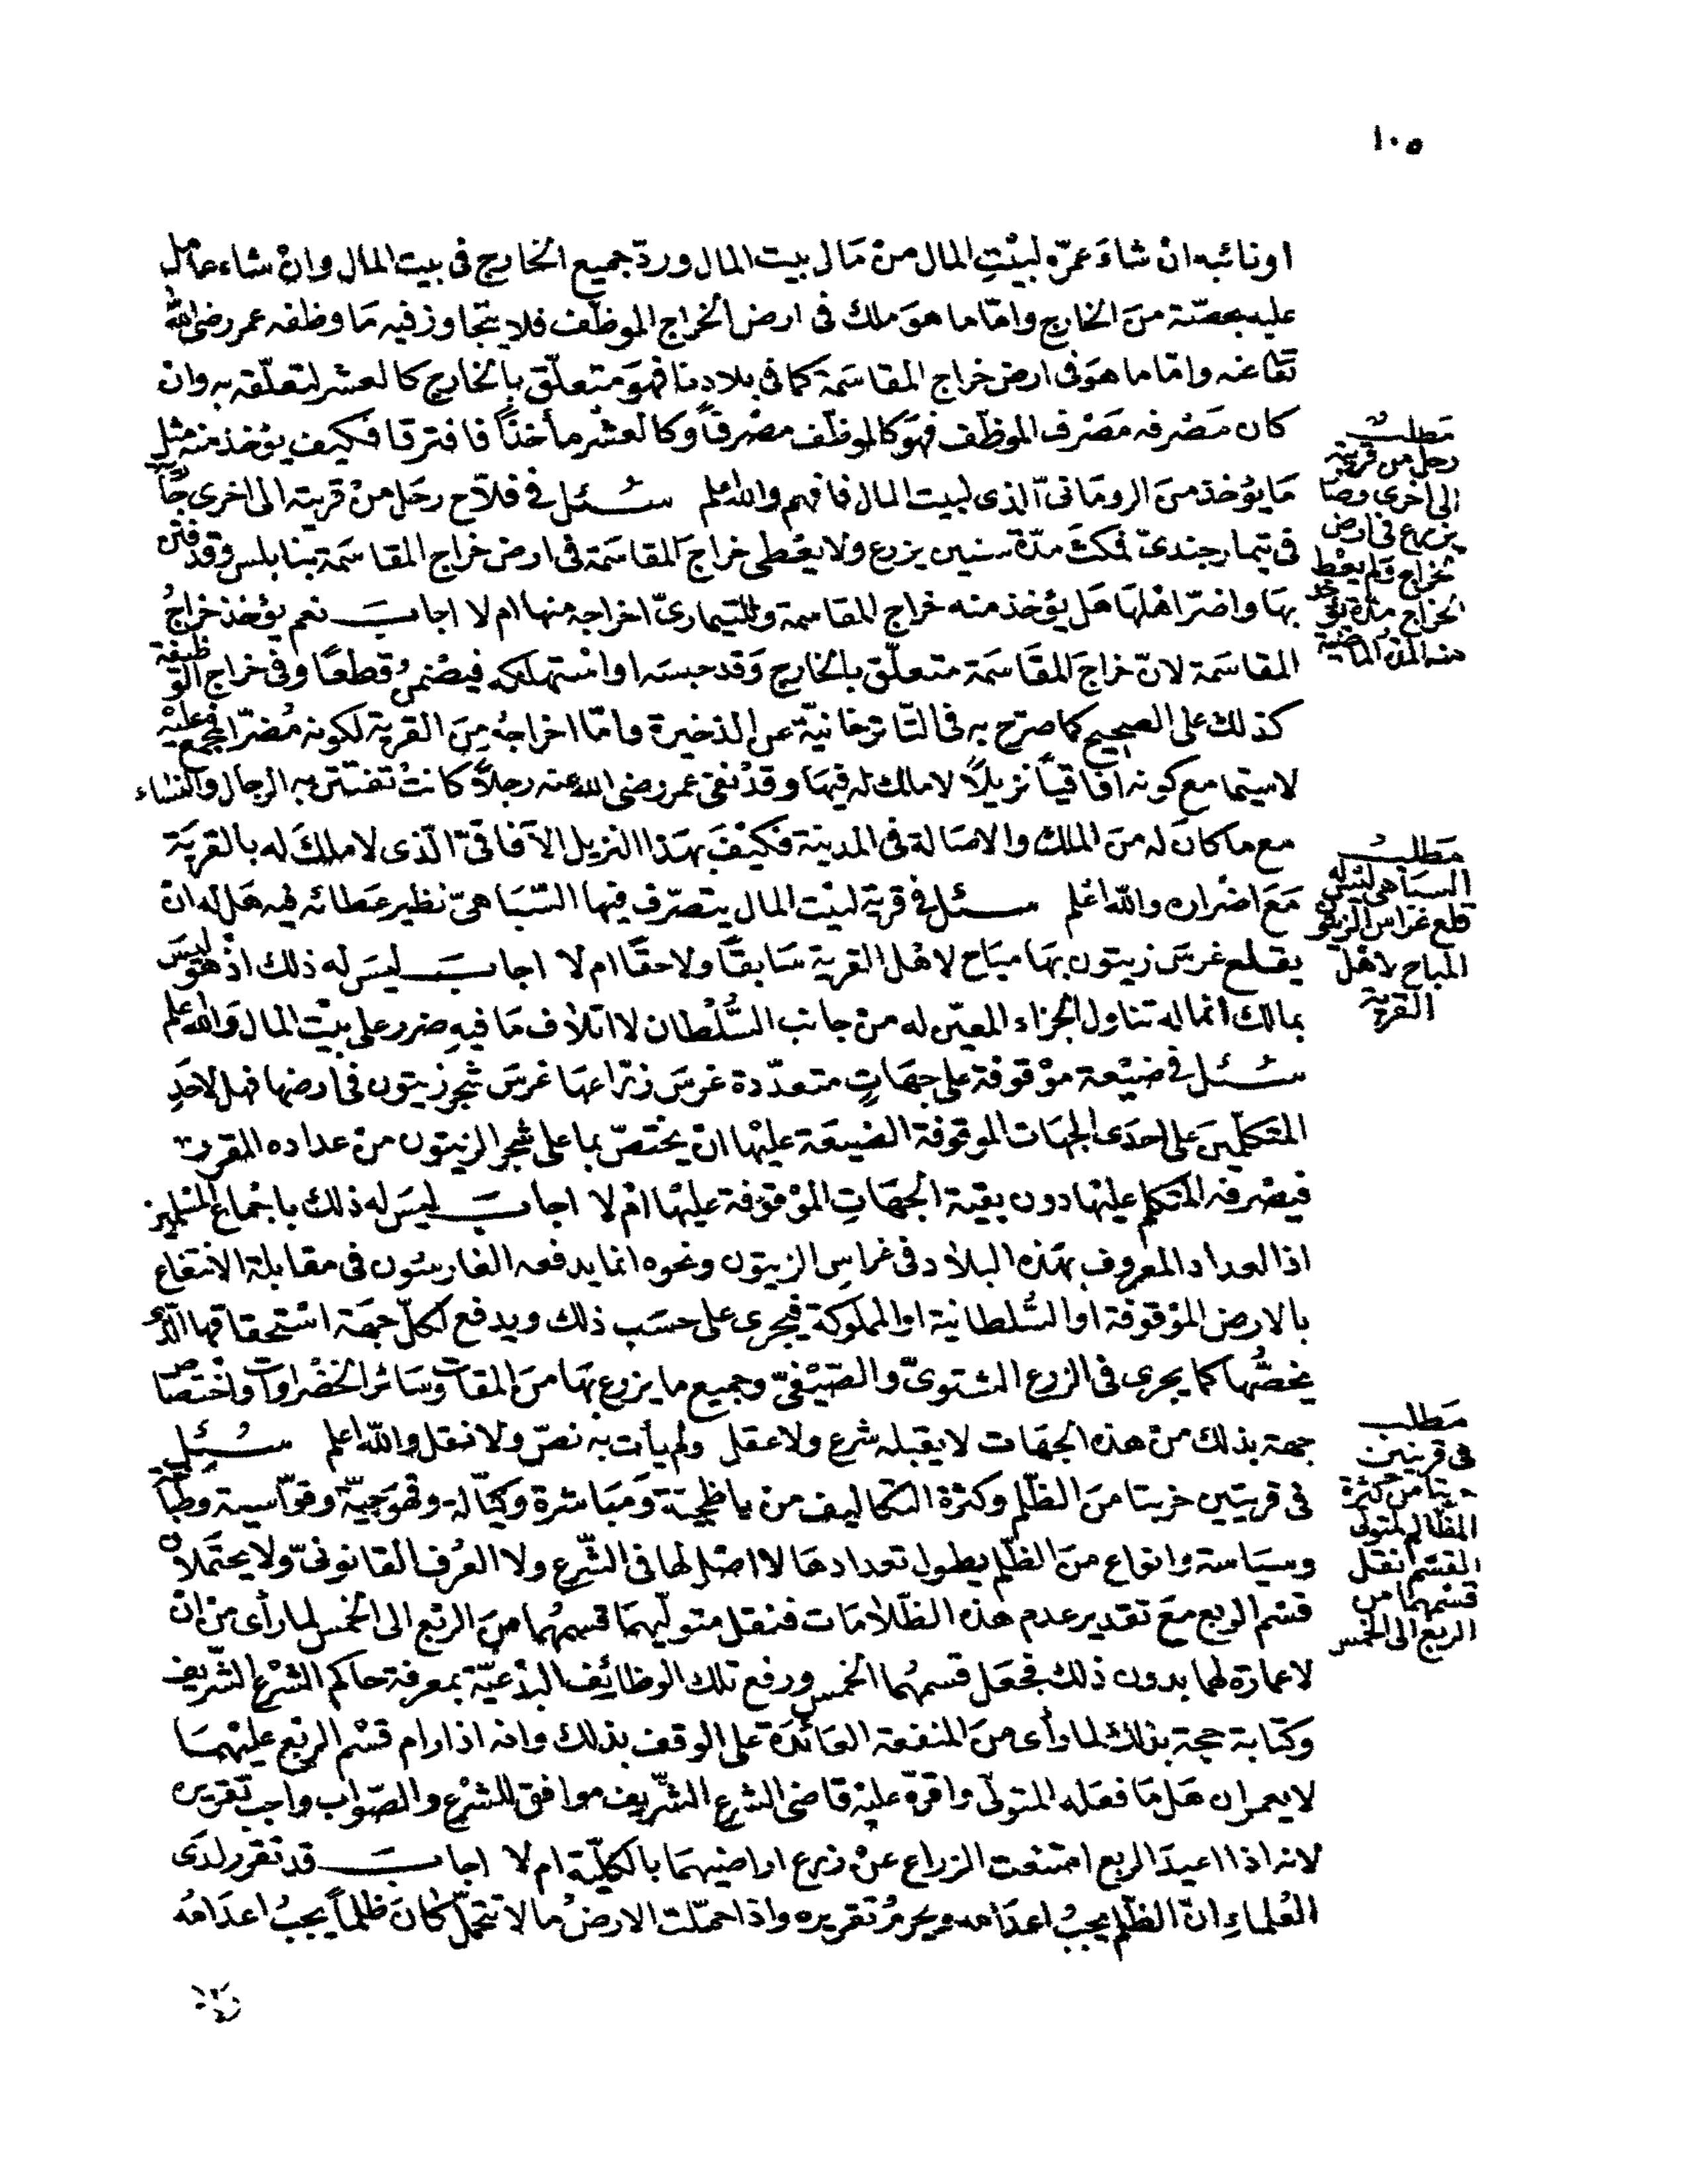 ١٠٥
اونائبه انْ شاءَ عمرّه لبيْتِ المال منْ مَال بيت المال وردّ جميع الخارج فى بيت المال وانْ شاء عامل
عليه بحصّة منَ الخارج وامّا ما هوَ ملك فى ارض الخراج الموظّف فلا يتجاوز فيه مَا وظفه عمر رضى الله
تعَا عنه وامّا ما هوَ فى ارض خراج المقاسَمة كما فى بلادنا فهوَ متعلّق بالخارج كالعشر لتعلّقه به وان
كان مَصْرفه مَصْرف الموظّف فهوَ كالموظّف مصْرفاً وكالعشر مأخذاً فافترقا فكيف يؤخذ منه مثل
مَا يؤخذ منَ الرومَانىّ الذى لبيت المال فافهم والله اعلم سُئل فى فلاّح رحَل منْ قرية الى اخرى
فى تيمار جندىّ فمكثَ مدّة سنين يزرع ولا يعْطى خراجَ المقاسَمة فى ارض خراج المقاسَمة بنابلس وقد فتن
بهَا واضرّ اهْلهَا هَل يؤخذ منه خراج المقاسمة وللتيمارىّ اخراجه منها ام لا اجابَ نعم يؤخذ خراجُ
المقاسَمة لانّ خراجَ المقَاسَمة متعلّق بالخارج وَقد حبسَه او اسْتهلكه فيضْمنُ قطعًا وفى خراج الوظيفة
كذلك على الصحيح كما صرّح به فى التّاترخانيّة عن الذخيرة وامّا اخراجُه مِنَ القرية لكونه مُضرّا فمجمع عليْه
لاسيّما مع كونه افاقياً نزيلاً لا ملك له فيهَا وقدْ نفى عمر رضى الله عنه رجلاً كانتْ تفتتن به الرجال والنساء
مع ما كانَ له منَ الملك والاصَالة فى المدينة فكيْفَ بهَذا النزيل الآفاقىّ الّذى لا ملكَ له بالقريَة
مَعَ اضْراره والله اعْلم سئل فى قرية لبيْت المال يتصرّف فيها السّبَاهىّ نظير عَطائه فيه هَل له انْ
يقلع غرسَ زيتون بهَا مبَاح لاهْل القرية سَابقًا ولاحقًا ام لا اجابَ ليسَ له ذلك اذْ هوَ ليسَ
بمالك انمّا له تناول الجزاء المعيّن له منْ جانب السُّلْطان لا اتلاف مَا فيهِ ضرر على بيْت المال وَالله اعلم
سُئل فى ضيْعة موْقوفة على جهَاتٍ متعدّدة غرسَ زرّاعهَا غرسَ شجر زيتون فى ارضها فهل لاحَدِ
المتكلّمينَ على احدَى الجهَات الموقوفة الضيعَة عليْها انْ يختصّ بما على شجر الزيتون منْ عداده المقرر
فيصْرفه المتكلم عليْها دون بقية الجهَاتِ الموْقوْفة عليْها امْ لا اجابَ ليسَ له ذلك باجْماع المسْلمين
اذ العداد المعروف بهَذه البلاد فى غراسِ الزيتون ونحوه انما يدفعه الغارسُون فى مقابلة الانتفاع
بالارض الموْقوفة او السُّلطانية او المملوكة فيجرى على حسَب ذلك ويدفع لكلّ جهَة اسْتحقاقها الّذى
يخصُّها كما يجرى فى الزرع الشتوىّ والصّيْفىّ وجميع ما يزرع بهَا منَ المقاث وسَائر الخضْراوات واخْتصَاص
جهة بذلك منْ هذه الجهَات لا يقبله شرع ولا عقل ولم يأت به نصّ ولا نقل والله اعلم سُئِل
فى قريتين خربتا منَ الظّلم وكثرة التكاليف من ياظجيّة ومَباشرة وكيّالة وقهوجيّة وقوّاسية
وسيَاسة وانواع منَ الظّلم يطول تعدادهَا لا اصْل لها فى الشّرع ولا العُرْف القانونىّ ولا يحتمَلانَ
قسْم الربع معَ تقدير عدم هذه الظّلامَات فنقل متولّيهمَا قسمهُما منَ الربْع الى الخمس لما رأى من انْ
لا عمارة لهما بدون ذلك فجعَل قسمهُما الخمس ورفع تلك الوظائِف البدْعيّة بمعرفة حاكم الشرْع الشّريف
وكتابة حجة بذلك لما رأى منَ المنفعة العَائدَة على الوقف بذلك وانه اذا رام قسْم الربْع عليْهمَا
لا يعمران هَل مَا فعَله المتولّى واقرّه عليْه قاضى الشرع الشّريف موافق للشرْع والصّواب واجب تقريره
لانه اذا اعيدَ الربع امتنعت الزراع عنْ زرع اراضيهمَا بالكلّيّة ام لا اجابَ قد تقرر لدَى
العُلماءِ انّ الظّلم يجبُ اعدَامه ويحرمُ تقريره واذا حمّلت الارضُ ما لا تتحمّل كانَ ظلماً يجبُ اعدَامُه
مَطلب
رحل من قرية
الى اخرى وصَا
يزرع فى ارض
الخراج فلم يعْط
الخراج مدّة يؤخذ
منه المدة الماضية
مَطلب
السبَاهى ليْس له
قلع غراس الزيتون
المباح لاهْل
القرية
مَطلب
فى قريتين
خربتا من كثرة
المظالم لمتولى
القسْم نقل
قسْمهما من
الربع الى الخمس